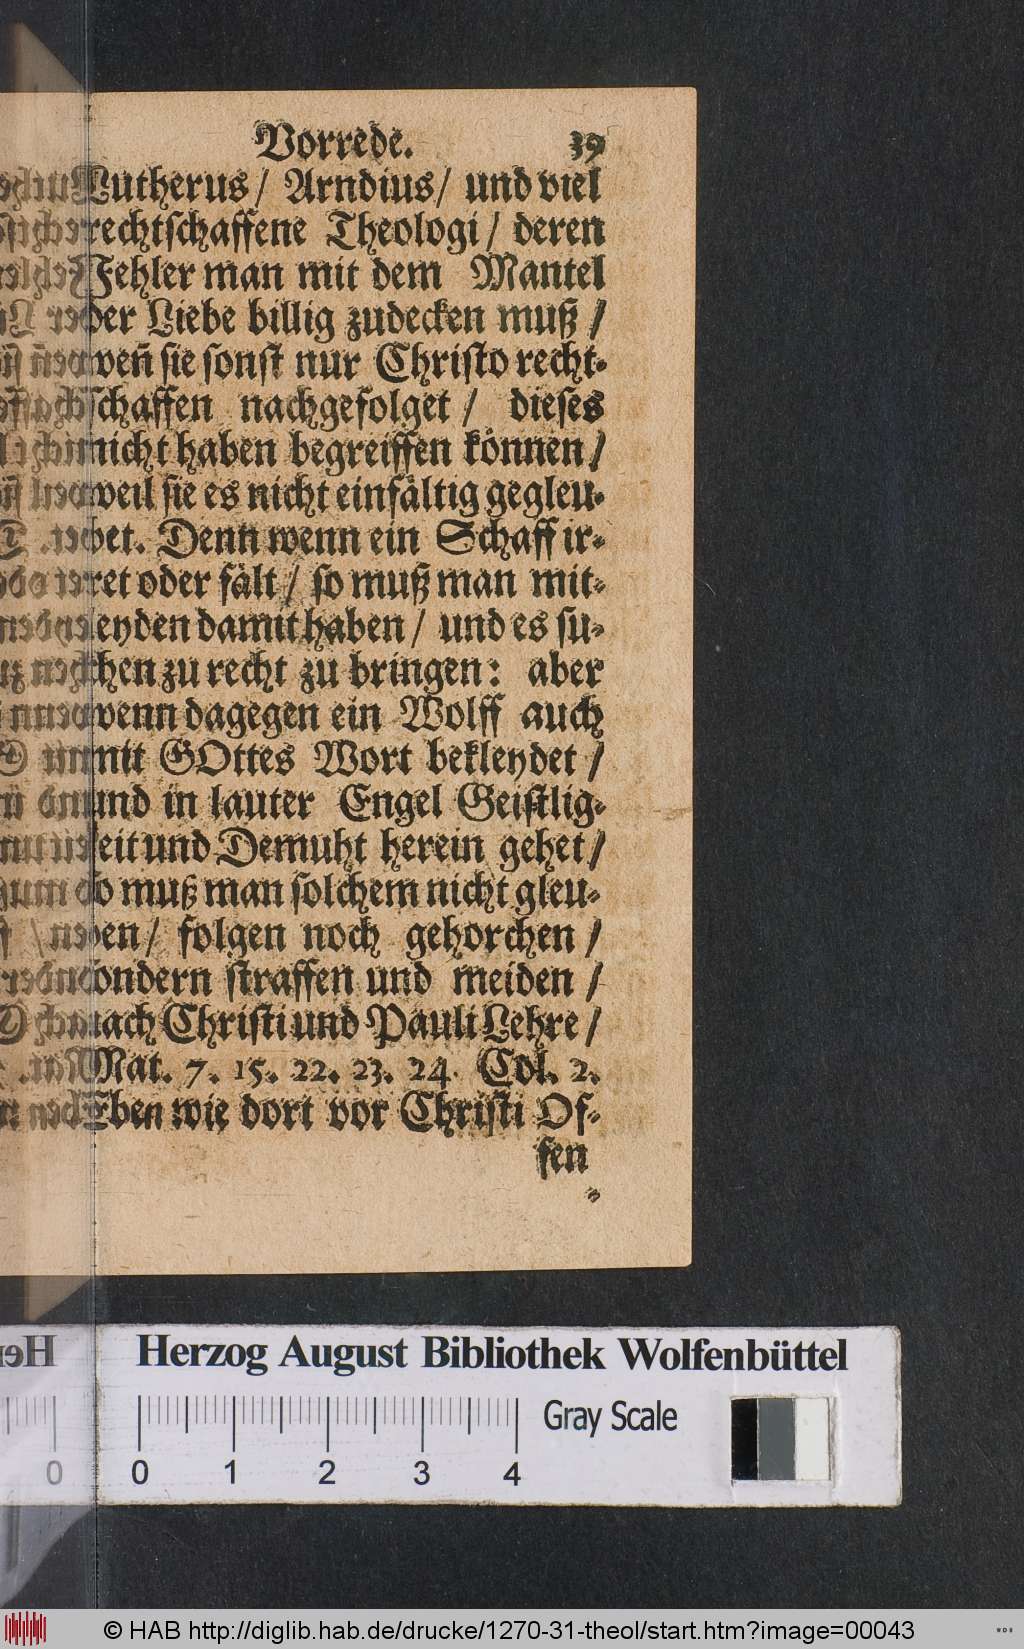 Vorrede. 39
Lutherus/ Arndius/ und viel
rechtschaffene Theologi/ deren
Fehler man mit dem Mantel
der Liebe billig zudecken muß/
weñ sie sonst nur Christo recht-
schaffen nachgefolget/ dieses
nicht haben begreiffen können/
weil sie es nicht einfältig gegleu-
bet. Denn wenn ein Schaff ir-
ret oder fält/ so muß man mit-
leyden damit haben/ und es su-
chen zu recht zu bringen: aber
wenn dagegen ein Wolff auch
mit GOttes Wort bekleydet/
und in lauter Engel Geistlig-
keit und Demuht herein gehet/
so muß man solchem nicht gleu-
ben/ folgen noch gehorchen/
sondern straffen und meiden/
nach Christi und Pauli Lehre/
Mat. 7. 15. 22. 23. 24. Col. 2.
Eben wie dort vor Christi Of-
fen
Herzog August Bibliothek Wolfenbüttel
0 0 1 2 3 4 Gray Scale
© HAB http://diglib.hab.de/drucke/1270-31-theol/start.htm?image=00043